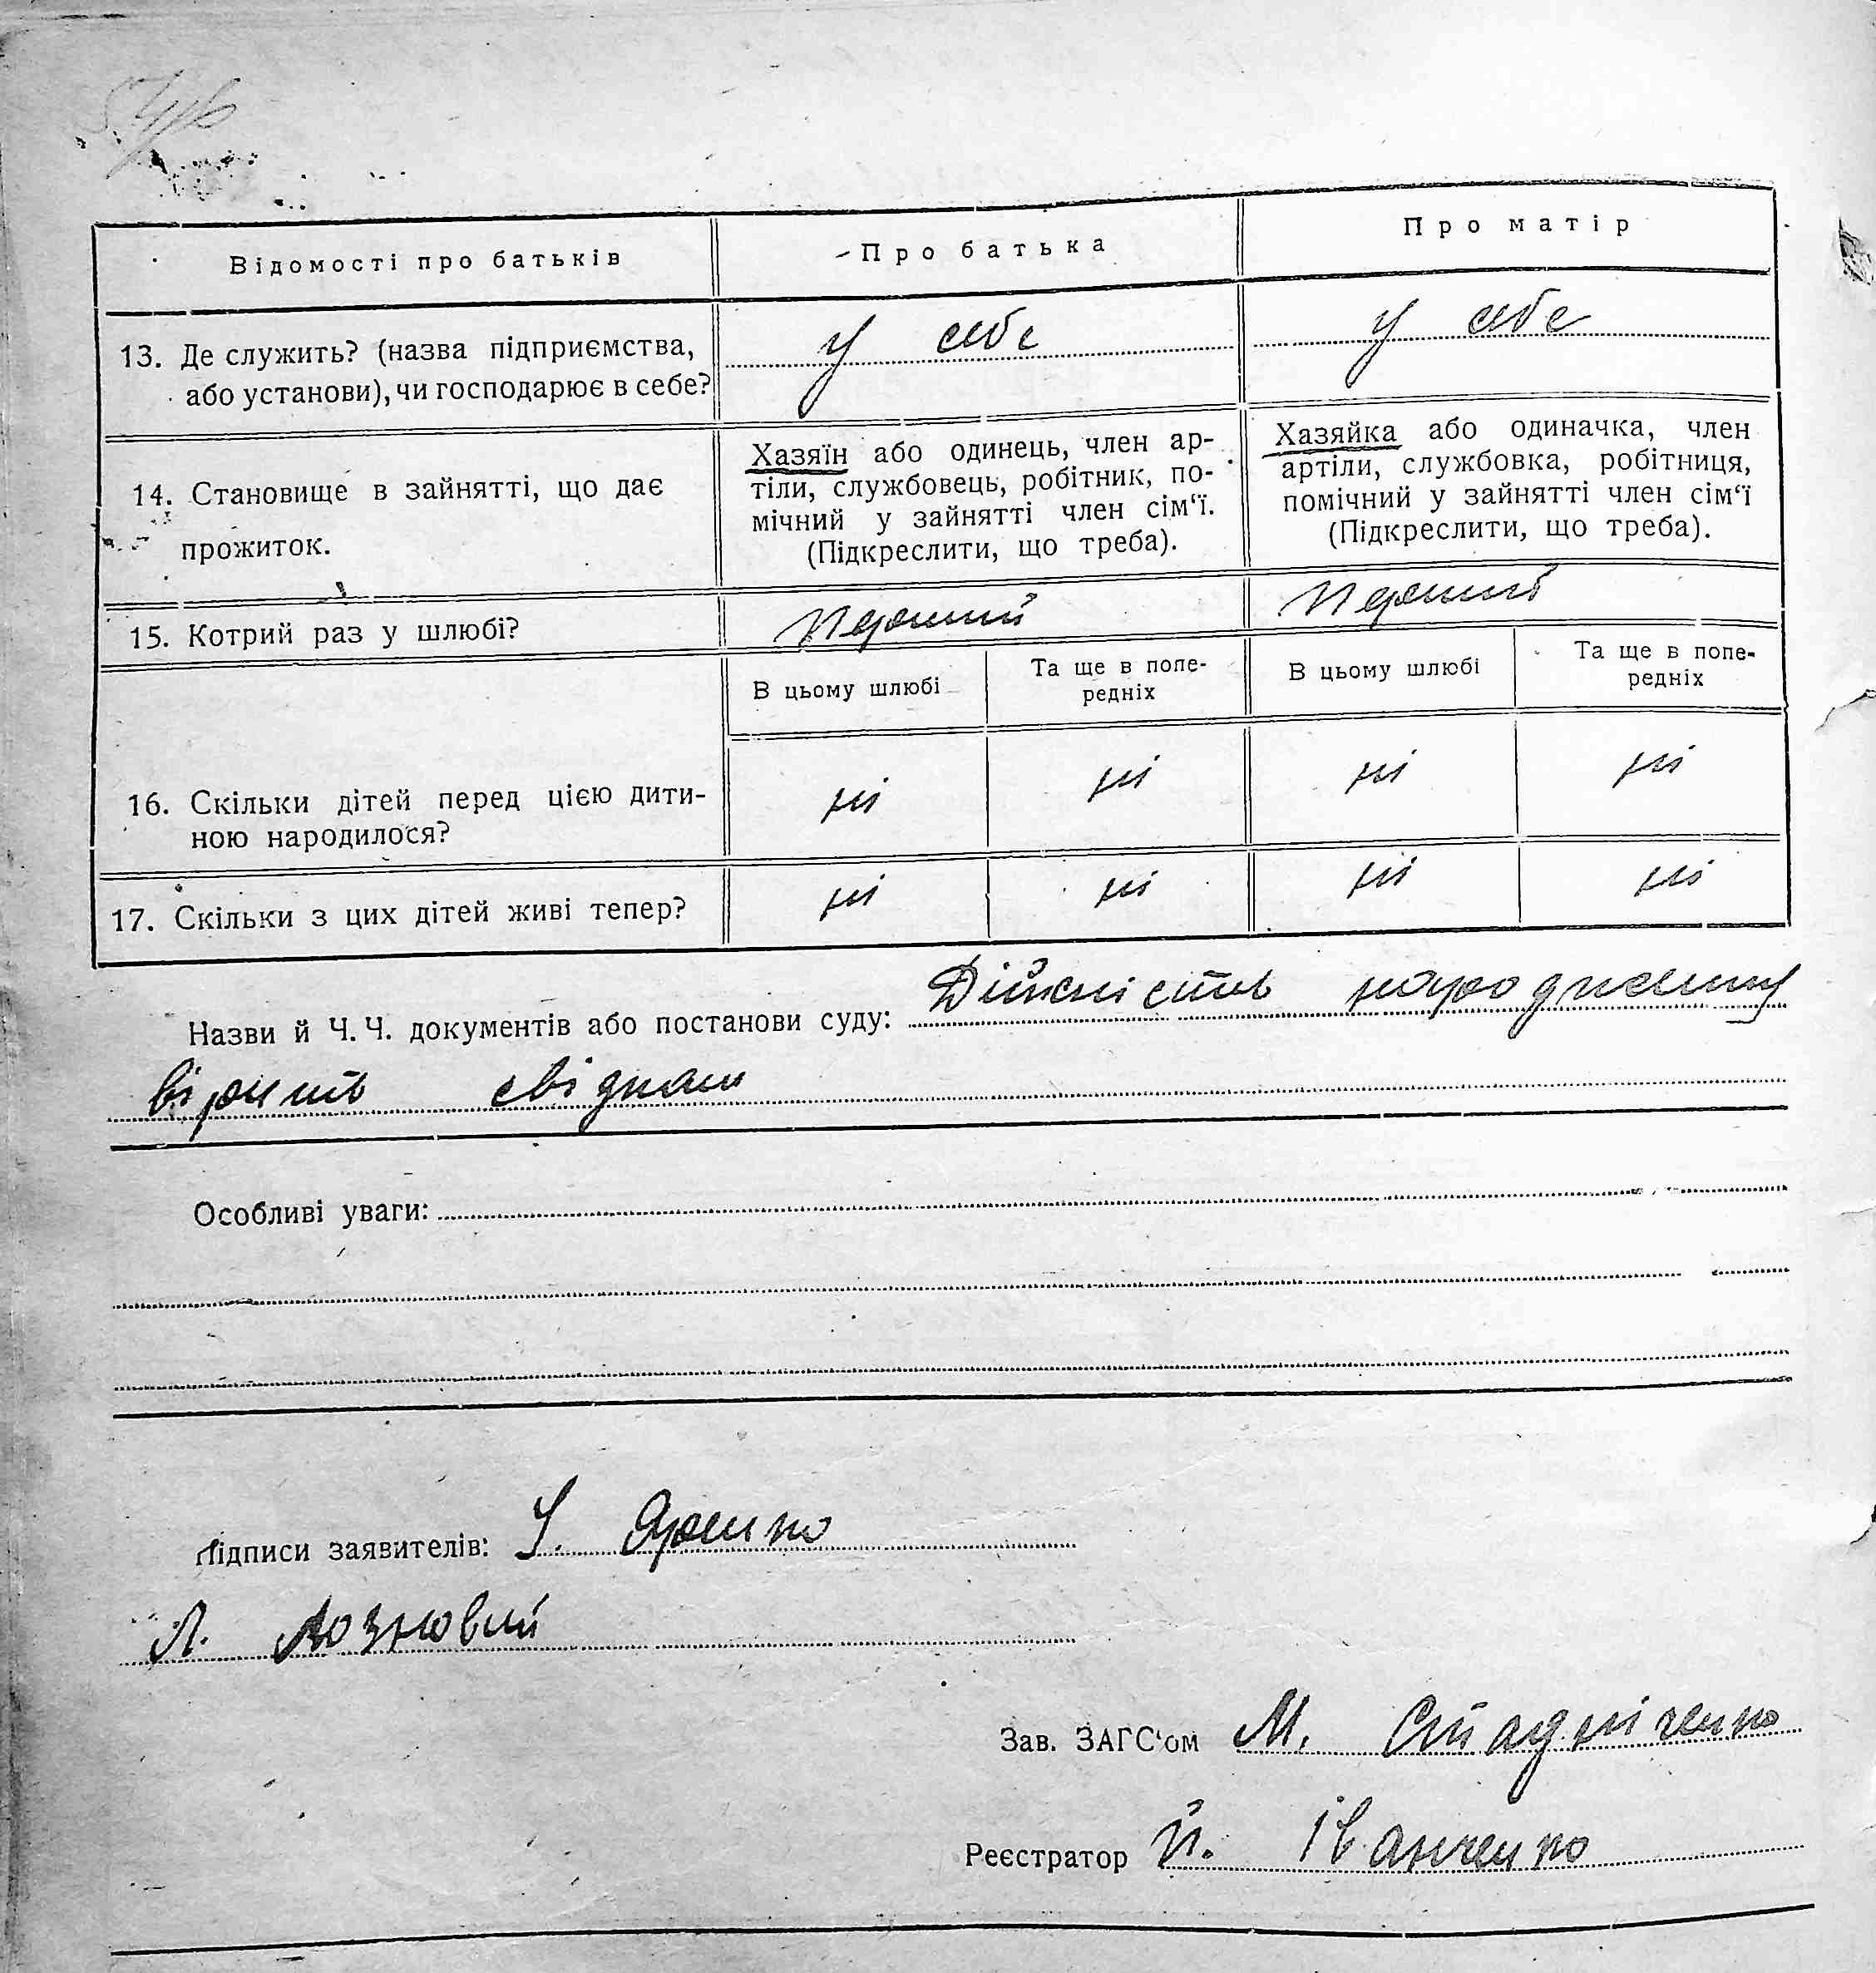 Відомості про батьків
Про батька
Про матір
13. Де служить? (назва підприємства,
або установи), чи господарює в себе?
у себе
у себе
14. Становище в зайнятті, що дає
прожиток.
Хазяїн або одинець, член ар-
тіли, службовець, робітник, по-
мічний у зайнятті член сім‘ї.
(Підкреслити, що треба).
Хазяйка або одиначка, член
артіли, службовка, робітниця,
помічний у зайнятті член сім‘ї
(Підкреслити, що треба).
15. Котрий раз у шлюбі?
Перший
Перший
В цьому шлюбі
Та ще в попе-
редніх
В цьому шлюбі
Та ще в попе-
редніх
16. Скільки дітей перед цією дити-
ною народилося?
ні
ні
ні
ні
17. Скільки з цих дітей живі тепер?
ні
ні
ні
ні
Назви й Ч. Ч. документів або постанови суду: Дійсність народження
вірить свідками
Особливі уваги:
Підписи заявителів: У. Яренко
Л. Лозковий
Зав. ЗАГС‘ом М. Стадніченко
Реєстратор Й. Іванченко